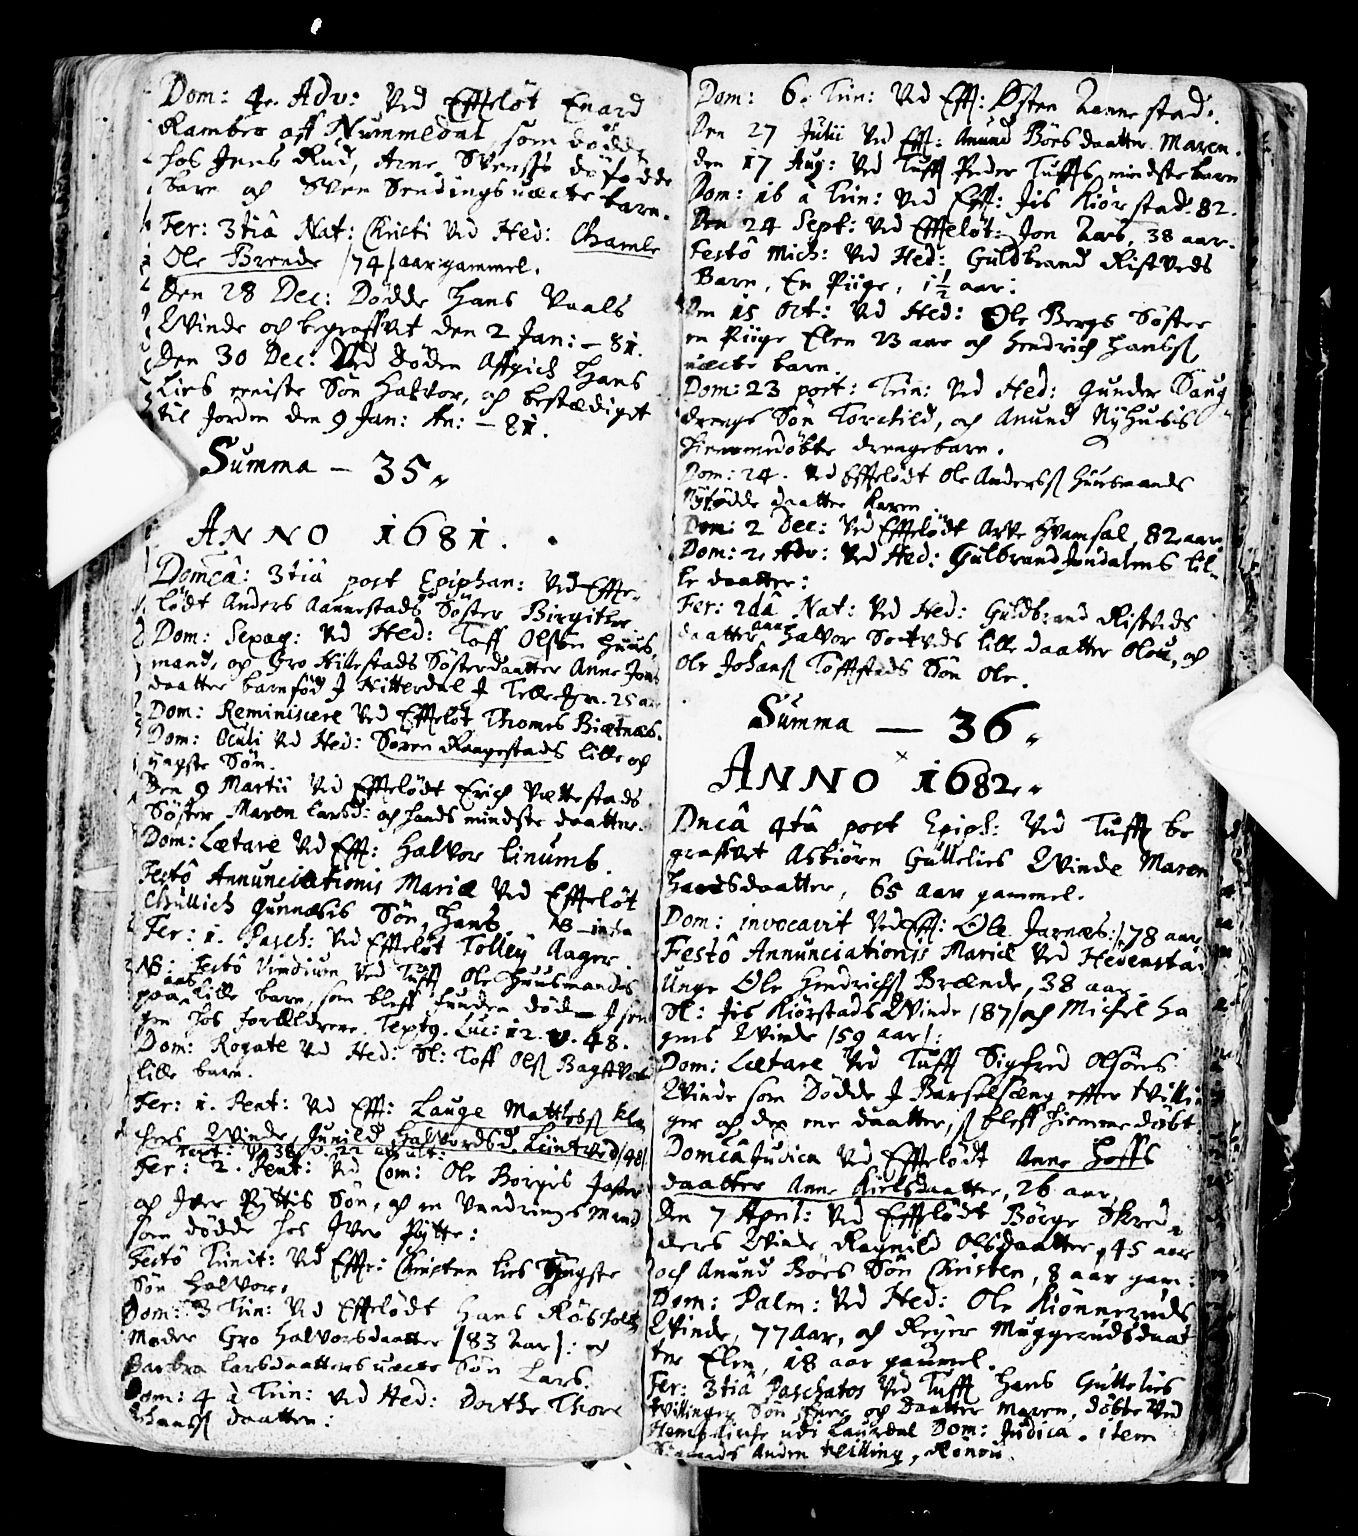 Dom: 4. Adv: Ved Effteløt Enard
Rambeo aff Nummedal som dødde
hos Jens Rud, Arne Svenss: døfødde
barn och Sven Sendings uæcte barn.
Fer: 3tiâ Nat: Christi Ved Hed: Gamle
Ole Brende /74/ aar gammel.
Den 28 Dec: Dødde Hans Vaals
Qvinde och begraffvet den 2 Jan: - 81.
Den 30 Dec: Ved døden Affgich Hans
Lies eeniste Søn Halvor, och bestædiget
til Jorden den 9 Jan: An: - 81.
Summa - 35
ANNO 1681.
Domcâ: 3tiâ post Epiphan: Ved Effte-
lødt Anders Aannestads Søster Birgithe
Dom: Sexag: Ved Hed: Toff Olsøn Huus-
mand, och Gro Hillestads Søsterdaatter Anne Jons
daatter barnfød J Hitterdal J Tellem: 25 a
Dom: Reminiscere Ved Effteløt Thomes Biætnæs.
Dom: Oculi Ved Hed: Søren Raagestads lille och
yngste Søn.
Den 9 Martii Ved Effteløt Erich Vættestads
Søster Maren Larsd: och hands mindste daatter.
Dom: Lætare Ved Efft: Halvor Linums.
Festô Annunciationis Mariæ Ved Effteløt
Chullich Gunnæsis Søn Hans. NB infra
Fer: 1. Pasch: Ved Effteløt Tolley Aager.
NB: Festô Viridium Ved Tufft Ole Huusmands
paa lille barn, som bleff funden død J sen
gen hos forældrene. Textg. Luc: 12. v. 48.
Dom: Rogate Ved Hed: Sl: Toff Olss Bagstvol
lille barn.
Fer: 1. Pent: Ved Efft: Lauge Matthss Klo
chers Qvinde, Gunild Halvordsd. /48/
Fer: 2. Pent: Ved Com: Ole Borgis Søster
och Iver Pyttis Søn, och en Vandrings Mand
som dødde hos Iver Pytte:
Festô Trinit: Ved Effte: Christen Lies Yngste
Søn Halvor.
Dom: 3 Trin: Ved Efftelødt Hans Røsholts
Moder Gro Halvorsdaatter /83 Aar/: och
Barbra Larsdaatters uæcte Søn Lars.
Dom: 4 à Trin: Ved Hed: Dorthe Thore
Johanss daatter:
Dom: 6. Trin: Ved Efft: Østen Aannestad.
Den 27 Julii Ved Eff: Anund Böes daatter Maren.
den 17 Aug: Ved Tufft Peder Tuffts mindste barn
Dom: 16 à Trin: Ved Efft: Jis Kiørstad. 82.
Den 24 Sept: Ved Effteløt: Jon Aas, 38 aar.
Festô Mich: Ved Hed: Guldbrand Ristveds
Barn, En Piige, 1½ aar:
Den 15 Oct: Ved Hed: Ole Bergs Søster
en Piige Elen 23 aar och Hendrich Hanss
uæcte barn.
Dom: 23 post: Trin: Ved Hed: Gunder
drengs Søn Torchild, och Anund Nyhuusis
hiemmedøbte drengebarn.
Dom: 24. Ved Efftelødt Ole Anderss Huusmands
Nyfødde daatter Karen.
Dom: 2 Dec: Ved Efftelødt Arve Hvamsal, 82 aar.
Dom: 2. Adv: Ved Hed: Gulbrand Jondalens lil-
le daatter:
Fer: 2dâ Nat: Ved Hed: Guldb:and Ristveds
daatter, Halvor Sortveds lille daatter Olou, och
Ole Johanss Tofftstads Søn Ole.
Summa — 36
ANNO 1682.
Dncâ 4tâ post Epiph: Ved Tufft be
graffvet Asbiørn Gulleliès Qvinde Maren
Hansdaatter, 65 aar gammel.
Dom: invocavit Ved Eff: Ole Jarnæs: /78 aar
Festô Annunciationis Mariæ Ved Hedenstad
Unge Ole Hendrichss Brænde, 38 aar.
Sl: Jis Kiørstads Qvinde /87/ och Michel Ha
gens Qvinde /59 aar/:
Dom: Lætare Ved Tufft Sigfred Olsøns
Qvinde som Dødde J Barselsæng effter tvillin
ger och den ene daatter, bleff hiemme døbt
Domcâ Judica Ved Efftelødt Anne Hoffs
daatter Anne Nielsdaatter, 26 aar,
Den 7 April: Ved Efftelødt Børge Skred-
ders Qvinde Ragnild Olsdaatter, 45 aar
och Anund Boes Søn Christen, 8 aar gam:
Dom: Palm: Ved Hed: Ole Kiønneruds
Qvinde, 77 Aar, och Reyer Muggerudsdaat
ter Elen, 18 aar gammel.
Fer: 3tiâ Paschatos Ved Tufft Hans Gullelies
tvillinger Søn Iver och Daatter Maren, døbte Ved
Hems kirche udi Laurdal Dom: Judica. item
Sigfreds Anden tvilling, Ronou.